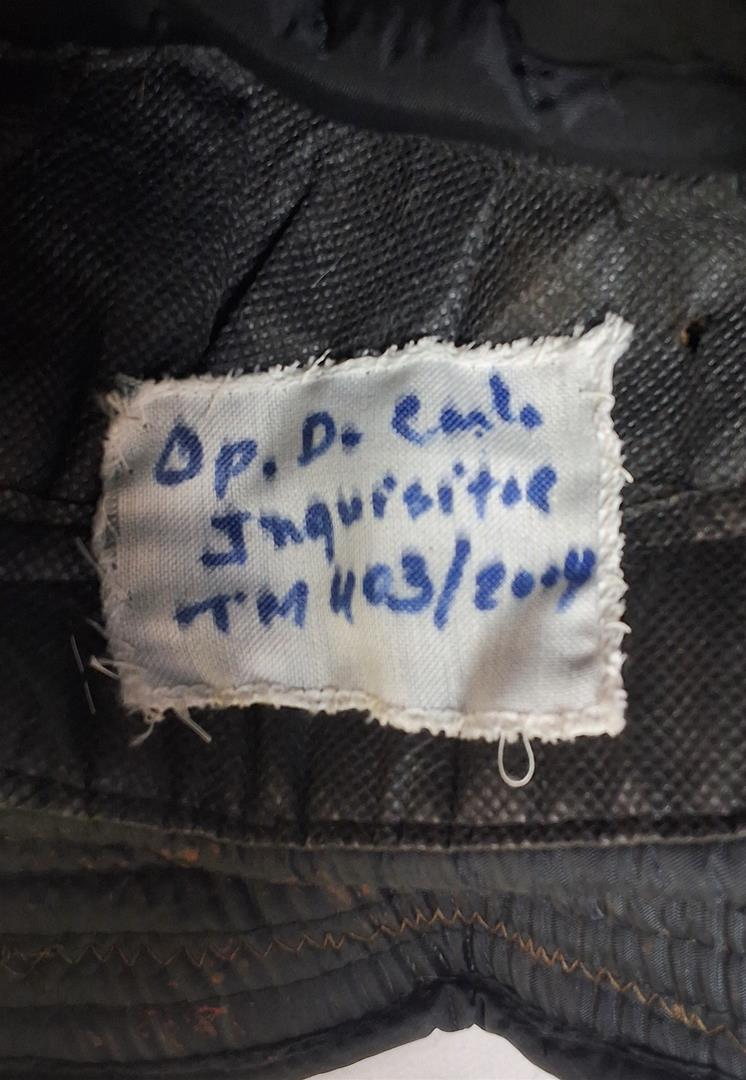 Op. D. Carlo
Inquisitor
TM 403/2004